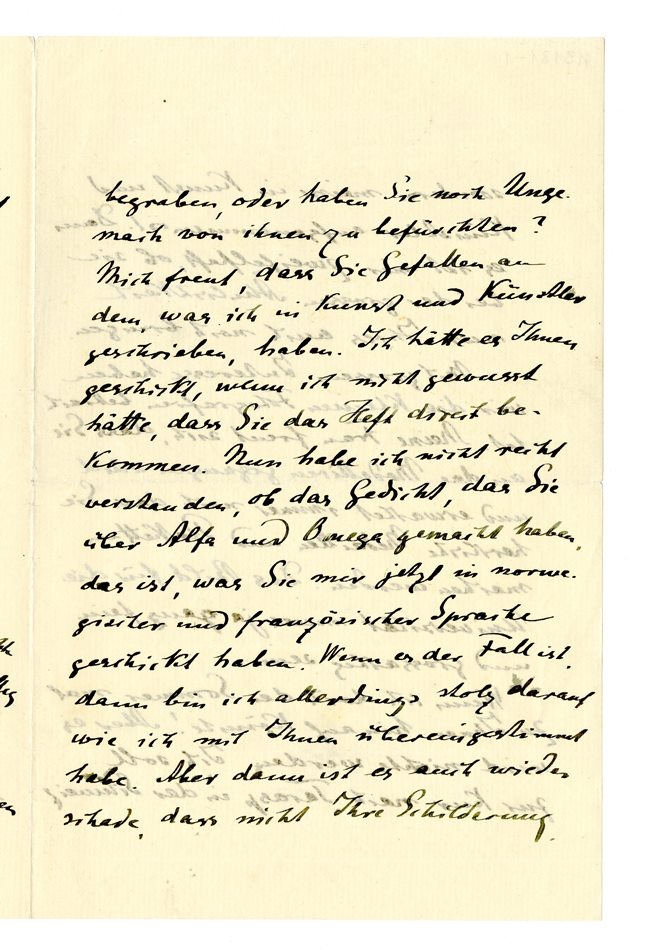 begraben, oder haben Sie noch Unge-
mach von ihnen zu befürchten?
Mich freut, dass Sie Gefallen an
dem, was ich in Kunst und Künstler
geschrieben, haben. Ich hätte es Ihnen
geschickt, wenn ich nicht gewusst
hätte, dass Sie das Heft direct be-
kommen. Nun habe ich nicht recht
verstanden, ob das Gedicht, das Sie
über Alfa und Omega gemacht haben,
das ist, was Sie mir jetzt in norwe-
gischer und französischer Sprache
geschickt haben. Wenn es der Fall ist,
dann bin ich allerdings stolz darauf
wie ich mit Ihnen übereingestimmt
habe. Aber dann ist es auch wieder
schade, dass nicht Ihre Schilderung,